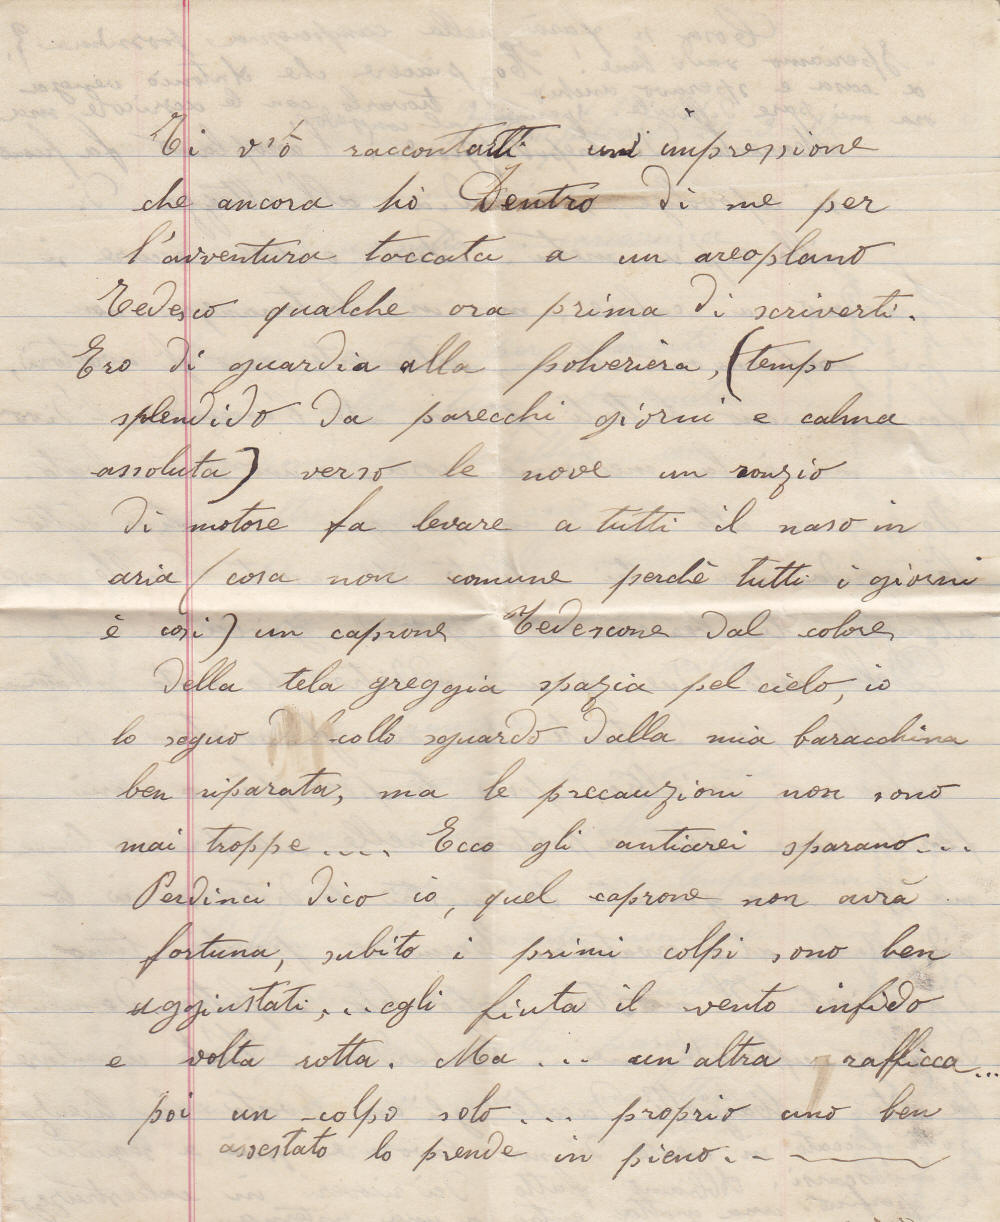 Ti v'ò raccontarti un'impressione
che ancora hò Dentro di me per
l'avventura toccata a un areoplano
Tedesco qualche ora prima di scriverti.
Ero di guardia alla polverièra, (tempo
splendido da parecchi giorni e calma
assoluta) verso le nove un ronzio
di motore fa levare a tutti il naso in
aria (cosa non comune perchè tutti i giorni
è così) un caprone Tedescone dal colore
della tela greggia spazia pel cielo, io
lo seguo collo sguardo dalla mia baracchina
ben riparata, ma le precauzioni non sono
mai troppe.... Ecco gli antiarei sparano...
Perdinci dico iò, quel caprone non avrà
fortuna, subito i primi colpi sono ben
aggiustati,...egli fiuta il vento infido
e volta rotta. Ma ... un'altra rafficca...
poi un colpo solo .... proprio uno ben
assestato lo prende in pieno. - -